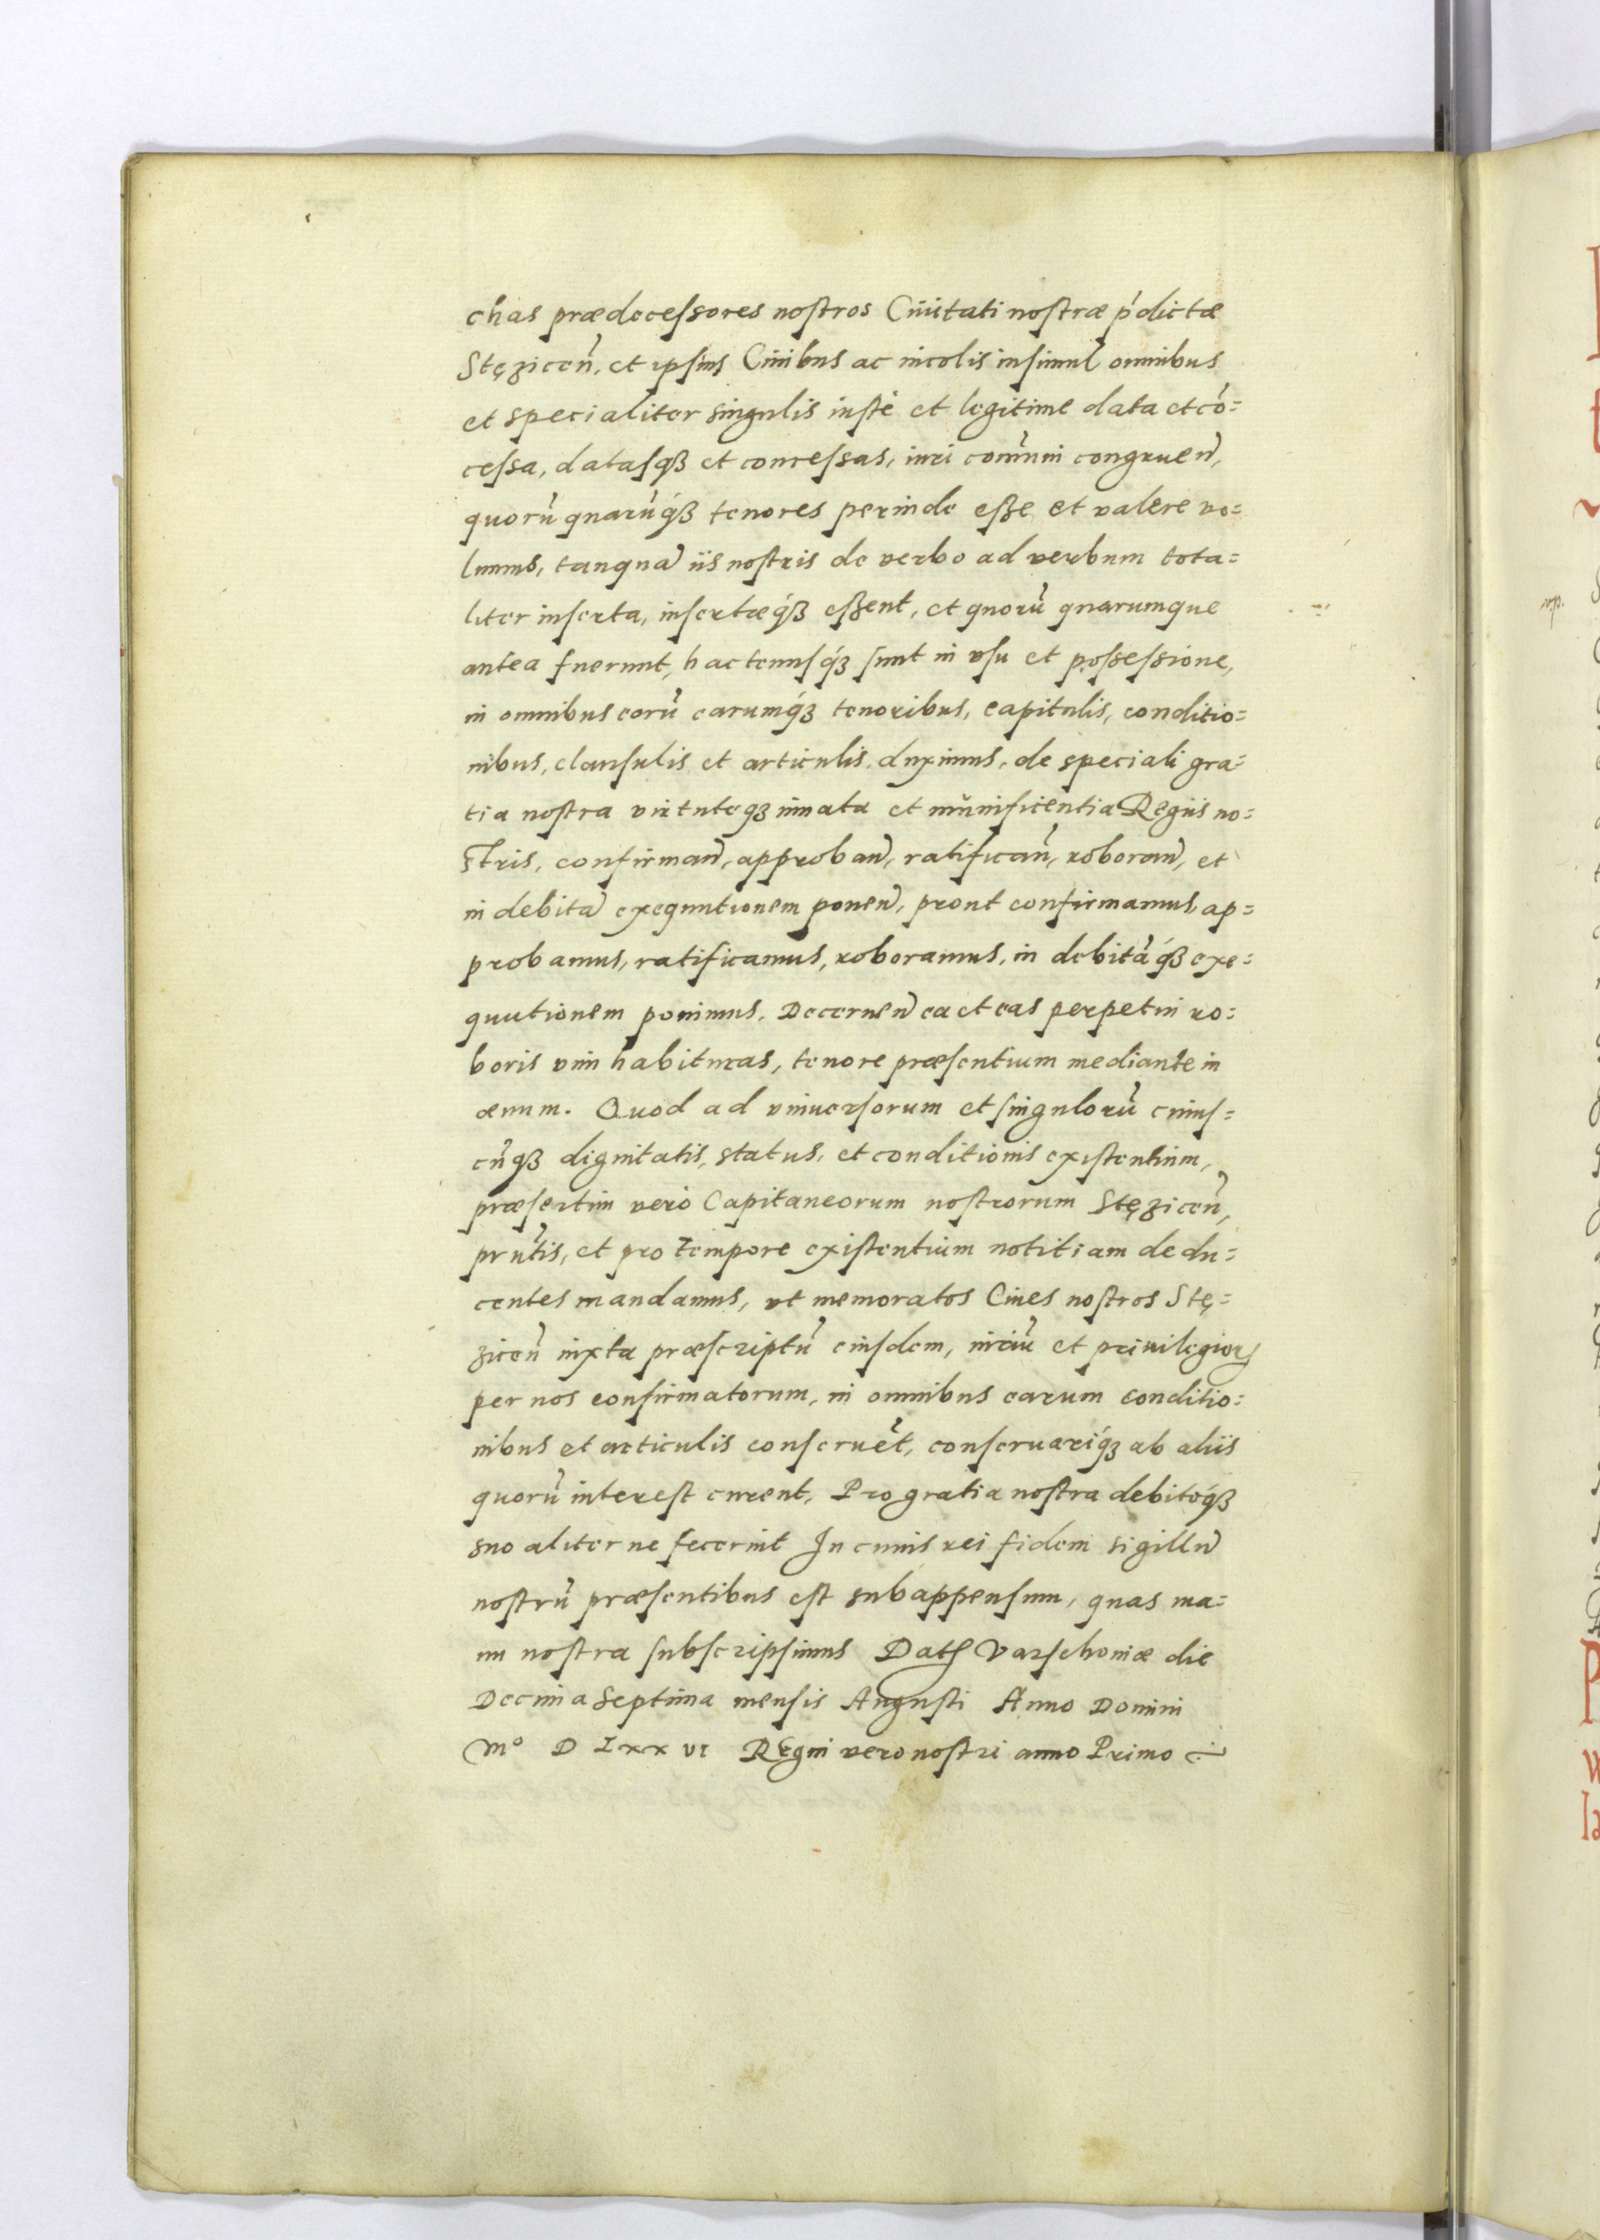 chas prædecessores nostros Ciuitati nostræ ṕdictæ
Stęzicen̄, et ipsius Ciuibus ac incolis insimul omnibus
et specialiter singulis iustè et legitime data et cō=
cessa, datasqꝫ et concessas, iuri com̄uni congruen̄,
quorū quarūqꝫ tenores perinde esse et valere vo=
lumus, tanquā iis nostris de verbo ad verbum tota=
liter inserta, insertæqꝫ essent, et quorū quarumque
antea fuerunt, hactenusqꝫ sunt in vsu et possessione,
in omnibus eorū earumqꝫ tenoribus, capitulis, conditio=
nibus, clausulis et articulis duximus, de speciali gra=
tia nostra virtuteqꝫ innata et munificentia Regiis no=
stris, confirman̄, approban̄, ratifican̄, roboran̄, et
in debitā exequutionem ponen̄, prout confirmamus, ap=
probamus, ratificamus, roboramus, in debitāqꝫ exe=
quutionem ponimus. Decernen̄ ea et eas perpetui ro=
boris vim habituras, tenore præsentium mediante in
æuum. Quod ad vniuersorum et singulorū cuius=
cūqꝫ dignitatis, status, et conditionis existentium,
præsertim verò Capitaneorum nostrorum Stęzicen̄,
pr̄ntis, et pro tempore existentium notitiam dedu=
centes mandamus, vt memoratos Ciues nostros Stę=
zicen̄ iuxta præscriptū eiusdem, iuriū et priuilegiorꝝ
per nos confirmatorum, in omnibus earum conditio=
nibus et articulis conseruēt, conseruariqꝫ ab aliis
quorū interest curent, Pro gratia nostra debitoqꝫ
suo aliter ne fecerint In cuius rei fidem sigillū
nostrū præsentibus est subappensum, quas ma=
nu nostra subscripsimus Datꝭ Varschouiæ die
Decima Septima mensis Augusti Anno Domini
Mº D Lxx vi Regni vero nostri anno Primo